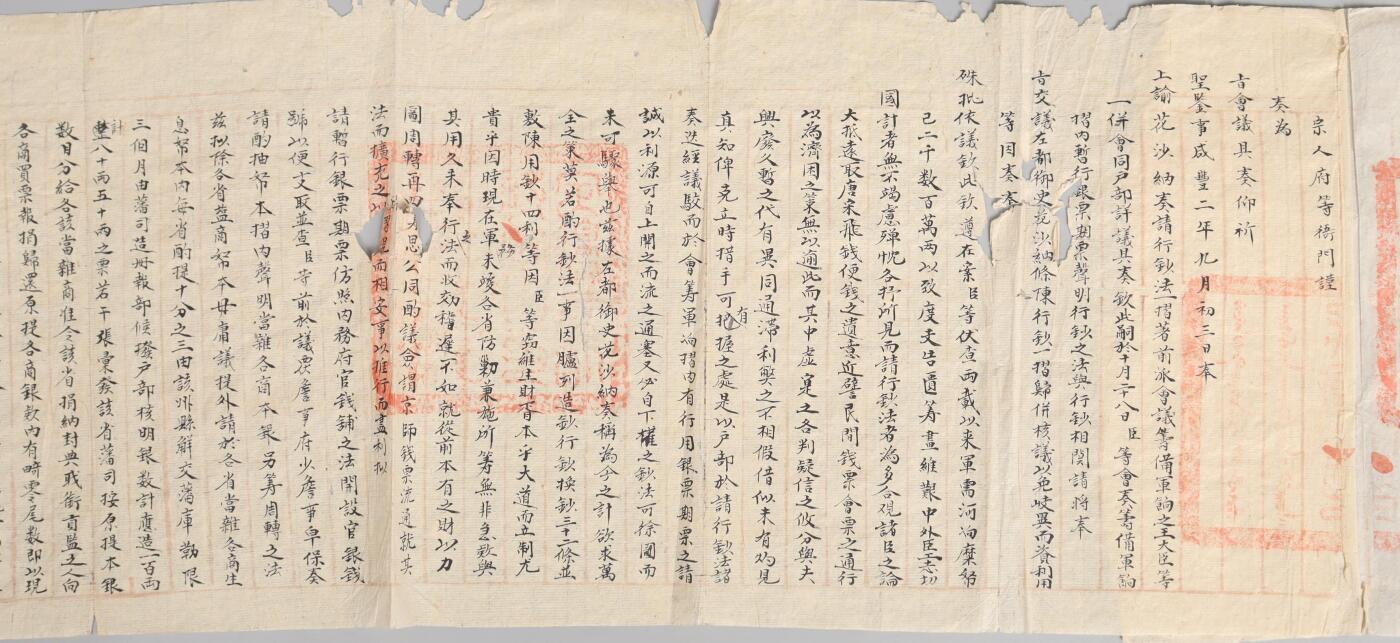 宗人府等衙門謹
奏為
旨會議具奏仰祈
聖鑒事咸豐二年九月初三日奉
上諭花沙納奏請行鈔法一摺著前派會議籌備軍餉之王大臣等
一併會同戶部詳議具奏欽此嗣於十月二十八日臣等會奏籌備軍餉
摺內暫行銀票期票聲明行鈔之法與行鈔相関請將奉
旨交議左都御史花沙納條陳行鈔一摺歸併核議以免岐異而資利用
等因奉奏
硃批依議欽此欽遵在案臣等伏查兩載以來軍需河餉糜帑
已二千數百萬兩以致度支告匱籌畫維艱中外臣工志切
國計者無不竭慮殫忱各抒所見而請行鈔法者為多合硯諸臣之論
大抵遠取唐宋飛錢便錢之遺意近譬民間錢票會票之通行
以為濟困之策無以逾此而其中虛寔之各判疑信之攸分與夫
興廢久暫之代有異同通滯利獘之不相假借似未有灼見
真知俾克立時措手可有把握之處是以戶部於請行鈔法諸
奏迭經議駮而於會籌軍餉摺內有行用銀票期票之請
誠以利源可自上開之而流之通塞又必自下權之鈔法可徐圖而
未可驟舉也茲據左都御史花沙納奏稱為今之計欲求萬
全之策莫若酌行鈔法一事因臚列造鈔行鈔換鈔三十二條並
敷陳用鈔十四利等因臣等竊維生財百本乎大道而立制尤
貴乎因時現在軍務未竣各省防勦兼施所籌無非急款與
其用久未奏行之法而收効稽遲不如就從前本有之財以力
圖周轉再四思公同酌議僉謂京師錢票流通就其
法而擴充之以習見而相安事以推行而盡利擬
請暫行銀票期票仿照內務府官錢舖之法開設官銀錢
號以便支取並查臣等前於議覆詹事府少詹事卓保奏
請酌抽帑本摺內聲明當雜各商本銀另籌周轉之法
茲擬除各省鹽商帑本毋庸議提外請於各省當雜各商生
息帑本內每省酌提十分之三由該州縣解交藩庫勒限
三個月由藩司造冊報部候撥戶部核明銀數計應造一百兩
計整八十兩五十兩之票若干張彙發該省藩司按原提本銀
数目分給各該當雜商准令該省捐納封典職銜貢監之人向
各商買票報捐歸還原提各商銀数內有畸零尾数即以現